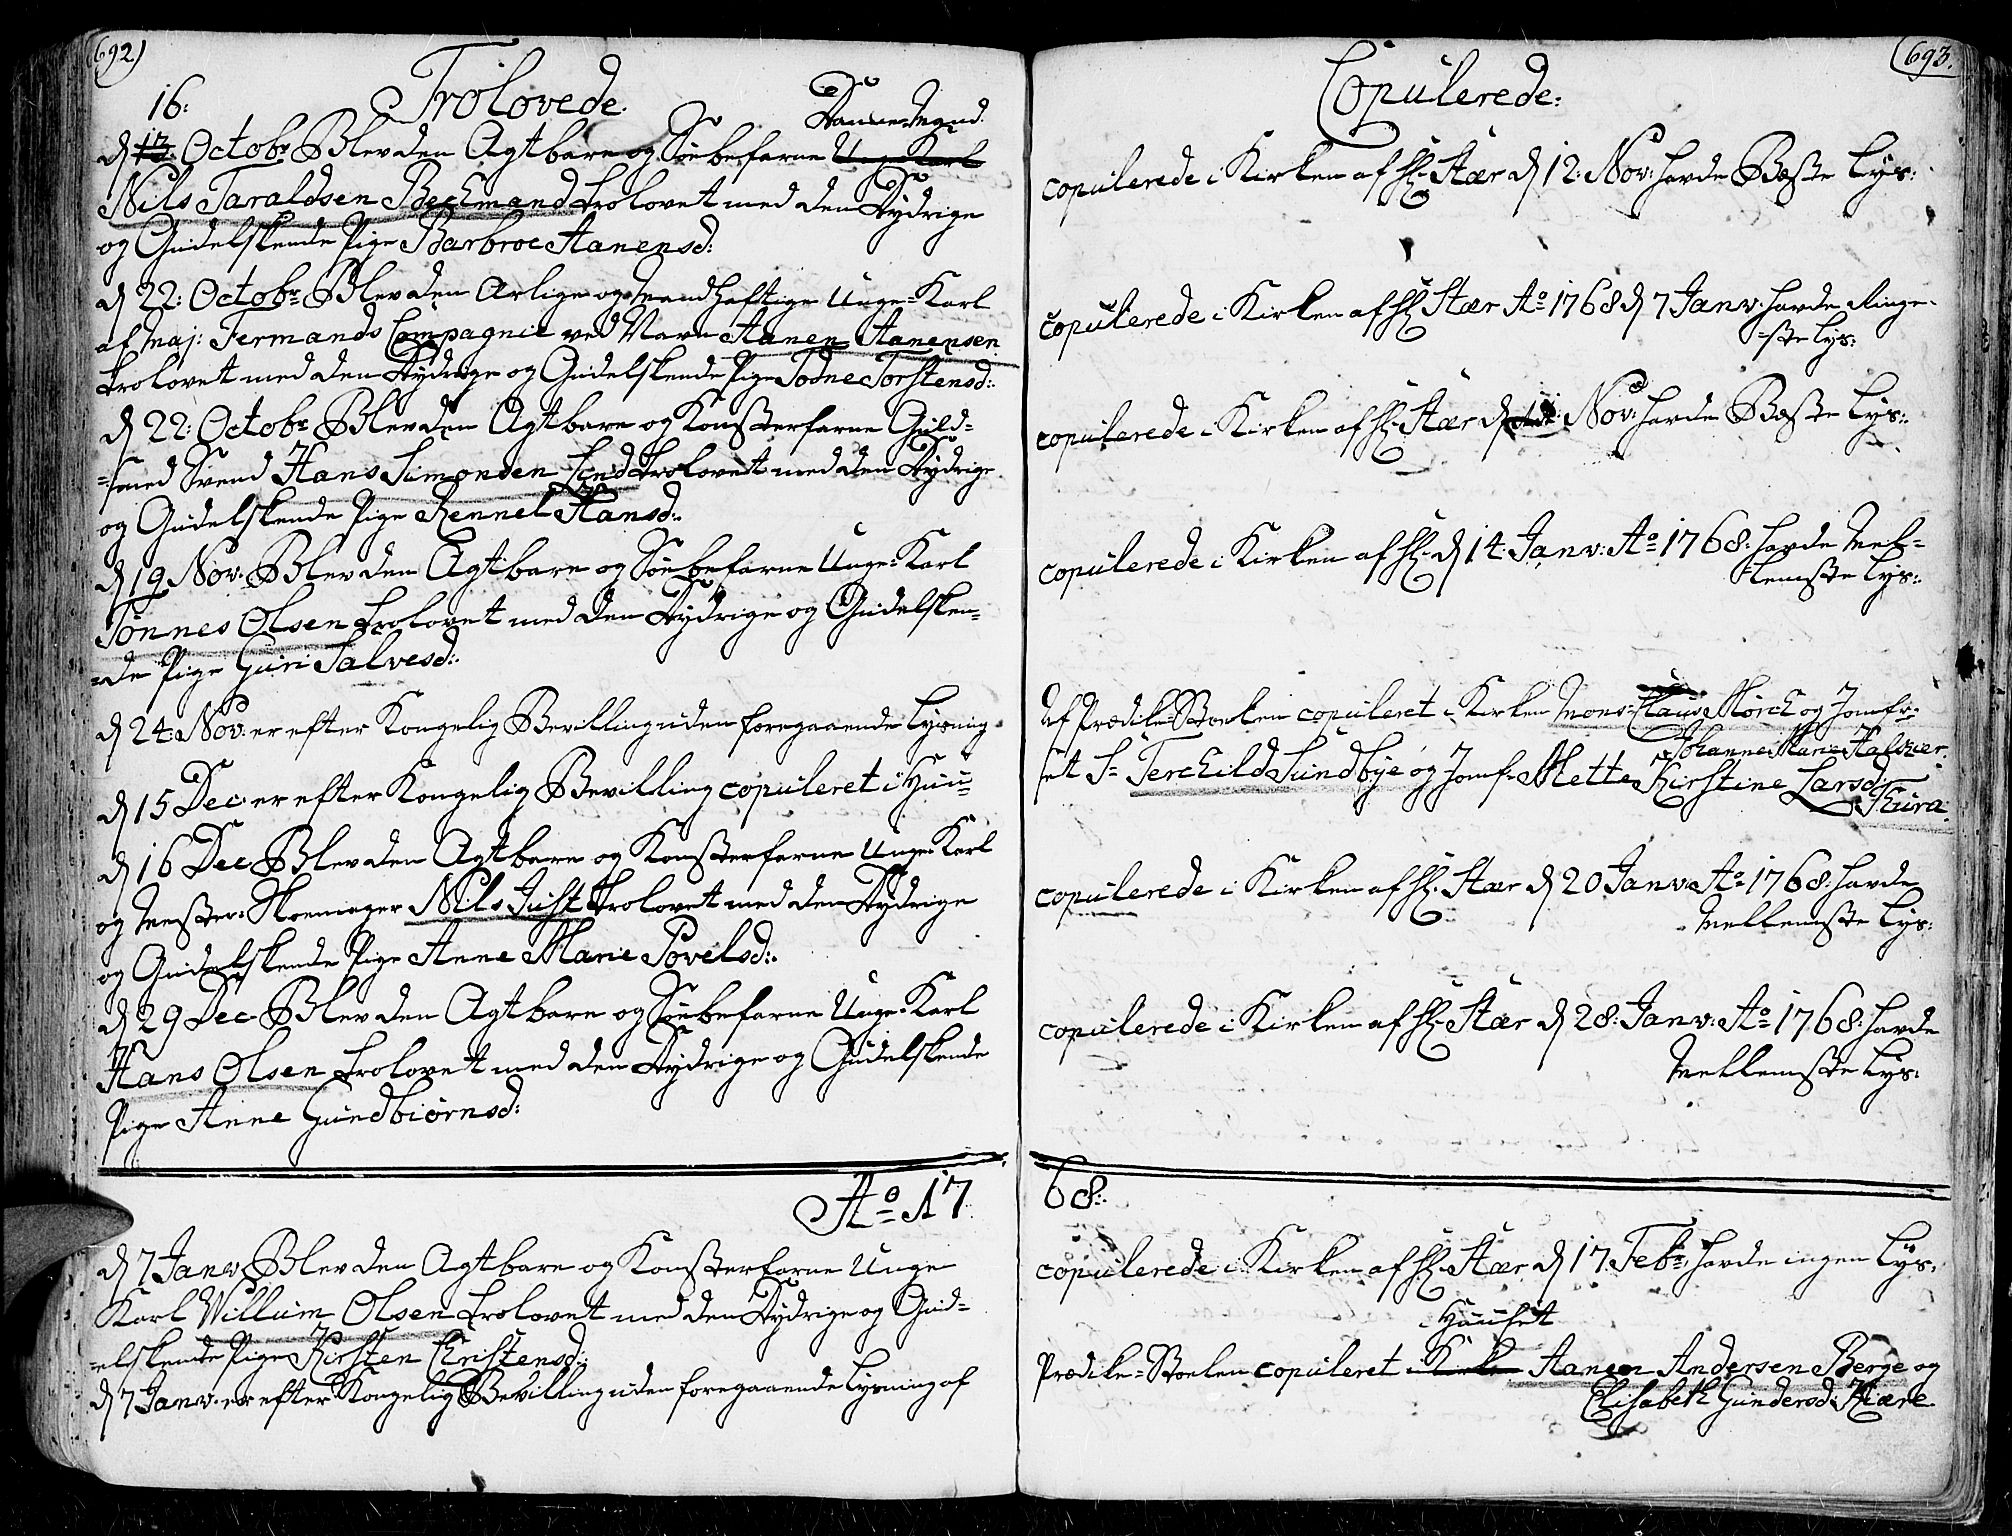 692)
Trolovede.
16:
Danne-Mand.
d 13: Octobr Blev den Agtbare og Søebefarne Unge Karl
Nils Taraldsen Beckmand trolovet med den Dydrige
og Gudelskende Pige Barbroe Aanensd:
d 22: Octobr Blev den Ærlige og Mandhaftige Unge-Karl
af Maj: Fermands Compagnie ved Navn Aanen Aanensen
trolovet med den Dydrige og Gudelskende Pige Todne Torstensd:
d 22: Octobr Blev den Agtbare og Konsterfarne Guld-
-smed Svend Hans Simonsen Lend trolovet med den Dydrige
og Gudelskende Pige Rennel Hansd:
d 19 Nov: Blev den Agtbare og Søebefarne Unge-Karl
Tønnes Olsen trolovet med den Dydrige og Gudelsken-
-de Pige Guri Salvesd:
d 24 Nov: er efter Kongelig Bevilling uden foregaaende Lysning
d 15 Dec: er efter Kongelig Bevilling copuleret i Huu-
d 16 Dec Blev den Agtbare og Konsterfarne Unge Karl
og Mester-Skoemager Nils Just trolovet med den Dydrige
og Gudelskende Pige Anne Marie Povelsd:
d 29 Dec Blev den Agtbare og Søebefarne Unge-Karl
Hans Olsen trolovet med den Dydrige og Gudelskende
Pige Anne Gundbiørnsd:
Ao 17
d 7 Janv: Blev den Agtbare og Konsterfarne Unge
Karl Willum Olsen trolovet med den Dydrige og Gud-
-elskende Pige Kirsten Christensd:
d 7 Janv: er efter Kongelig Bevilling uden foregaaende Lysning af
693.
Copulerede:
copulerede i Kirken af Hr Stær d 12: Nov: havde Beste Lys:
copulerede i Kirken af Hr Stær Ao 1768 d 7 Janv: havde Ringe-
-ste Lys:
copulerede i Kirken af Hr Stær d 11 Nov: havde Beste Lys:
copulerede i Kirken af Hr d 14: Janv: Ao 1768: havde Mel-
-lemste Lys:
Af Prædike-Stoelen copuleret i Kirken Mons: Claus Mørch og Jomfr:
Johanne Marie Kalskær
set Sr Terchild Sundbye og Jomf: Mette Kirstine Larsd:
Thura.
copulerede i Kirken af Hr Stær d 20 Janv: Ao 1768: havde
Mellemste Lys:
copulerede i Kirken af Hr Stær d 28: Janv: Ao 1768: havde
Mellemste Lys:
68:
copulerede i Kirken af Hr Stær d 17 Febr: havde ingen Lys:
i Huuset
Prædike-Stoelen copuleret i Kirke Aanen Andersen Berge og
Elisabeth Gundersd: Kiære